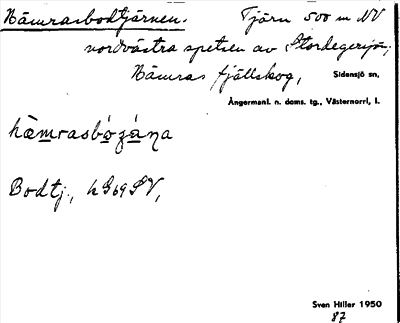 Nämrasbodtjärnen. Tjärn 500 m NV
nordvästra spetsen av Stordegersjön,
Nämras fjällskog, Sidensjö sn,
Ångermanl. n. doms. tg., Västernorrl, l.
Bodtj., h869SV,
Sven Hiller 1950
87